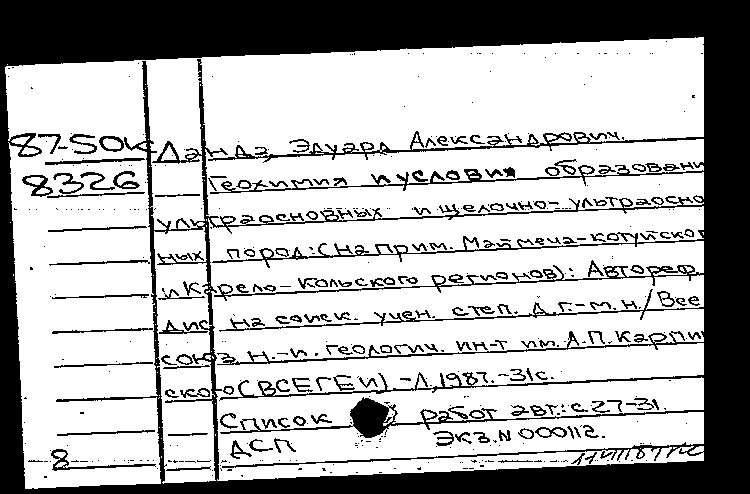 87-50к Ландэ, Эдуард Александрович.
8326 Геохимия и условия образовани
ультраосновных и щелочно-ультраосно
ных пород: (На прим. Маймеча-Котуйског
и Карело-Кольского регионов): Автореф.
дис. на соиск. учен. степ. д.г.-м.н./Все
союз. н.-и. геологич. ин-т им. А.П. Карпин
ского (ВСЕГЕИ).-Л, 1987.-31с.
Список работ авт.: с.27-31.
ДСП Экз.N 000112.
8